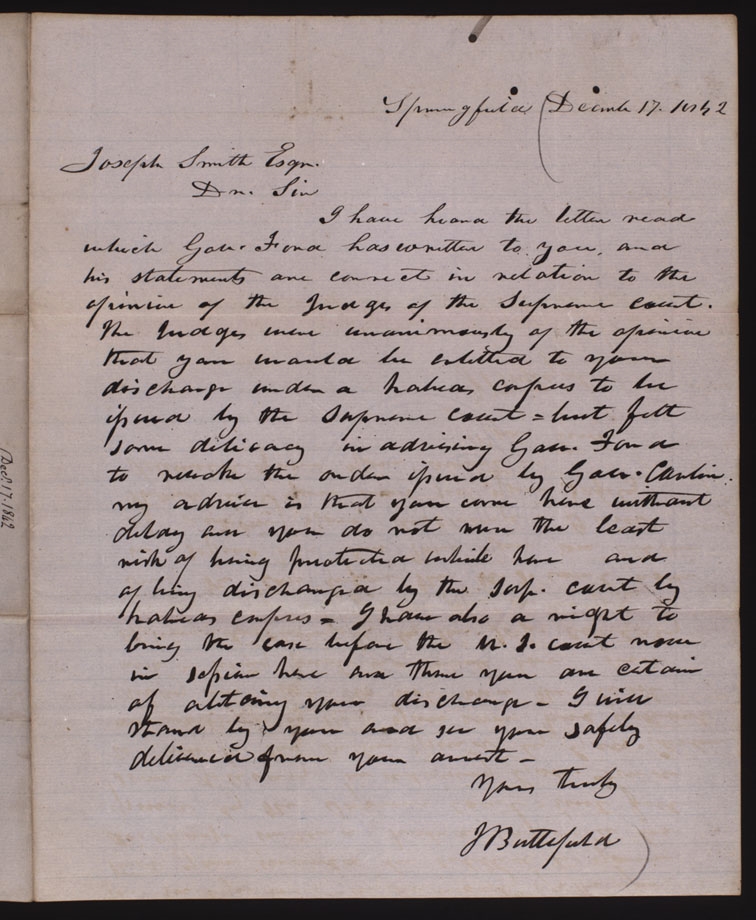 Springfield Decemb 17. 1842
Joseph Smith Esqr.
Dr. Sir
I have heard the letter read
which Gov. Ford has written to you, and
his statements are correct in relation to the
opinion of the Judges of the Supreme court.
The Judges were unanimously of the opinion
that you would be entitled to your
discharge under a habeas corpus to be
issued by the Supreme court = but felt
some delicacy in advising Gov. Ford
to revoke the order issued by Gov. Carlin.
my advice is that you come here without
delay and you do not run the least
risk of being protected while here and
of being discharged by the Sup. court by
habeas corpus = I have also a right to
bring the case before the U. S. court now
in session here and there you are certain
of obtaining your discharge - I will
stand by you and see you safely
delivered from your arrest -
Yours truly
J Butterfield
Dec. 17. 1842